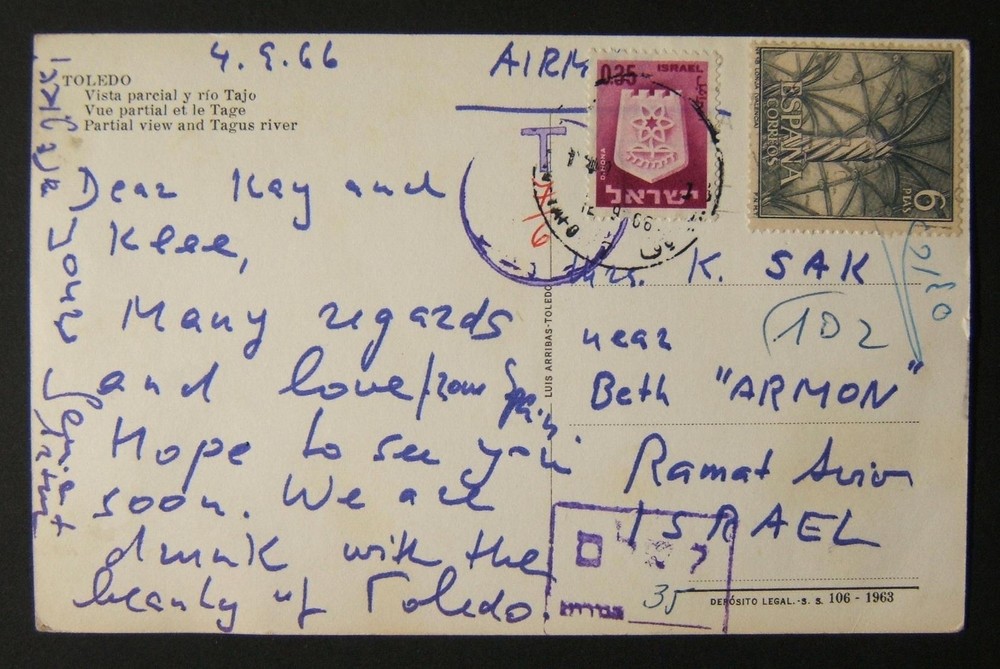 4.9.66
TOLEDO
Vista parcial y río Tajo
Vue partial et le Tage
Partial view and Tagus river
Dear Kay and
Klee,
Many regards
and love from Spain.
Hope to see you
soon. We are
drunk with the
beauty of Toledo.
LUIS ARRIBAS-TOLEDO
AIRM
0.35 ISRAEL
D.HOMA
ישראל
ESPAÑA
CORREOS
6
PTAS
T
Mrs. K. SAK
102
near
Beth "ARMON"
Ramat Aviv
ISRAEL
35
DEPÓSITO LEGAL.-S. S. 106 - 1963